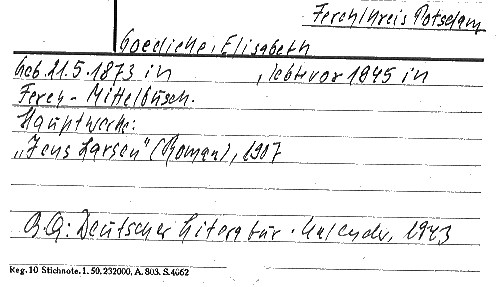 Ferch/Kreis Potsdam
Goedicke, Elisabeth
Geb. 21.5.1873 in , lebte vor 1945 in
Ferch-Mittelbusch.
Hauptwerke:
„Jens Larsen" (Roman), 1907
B.Q.: Deutscher Literatur-Kalender, 1943
Keg. 10 Stichnote. 1. 50. 232000, A. 803. S. 4662